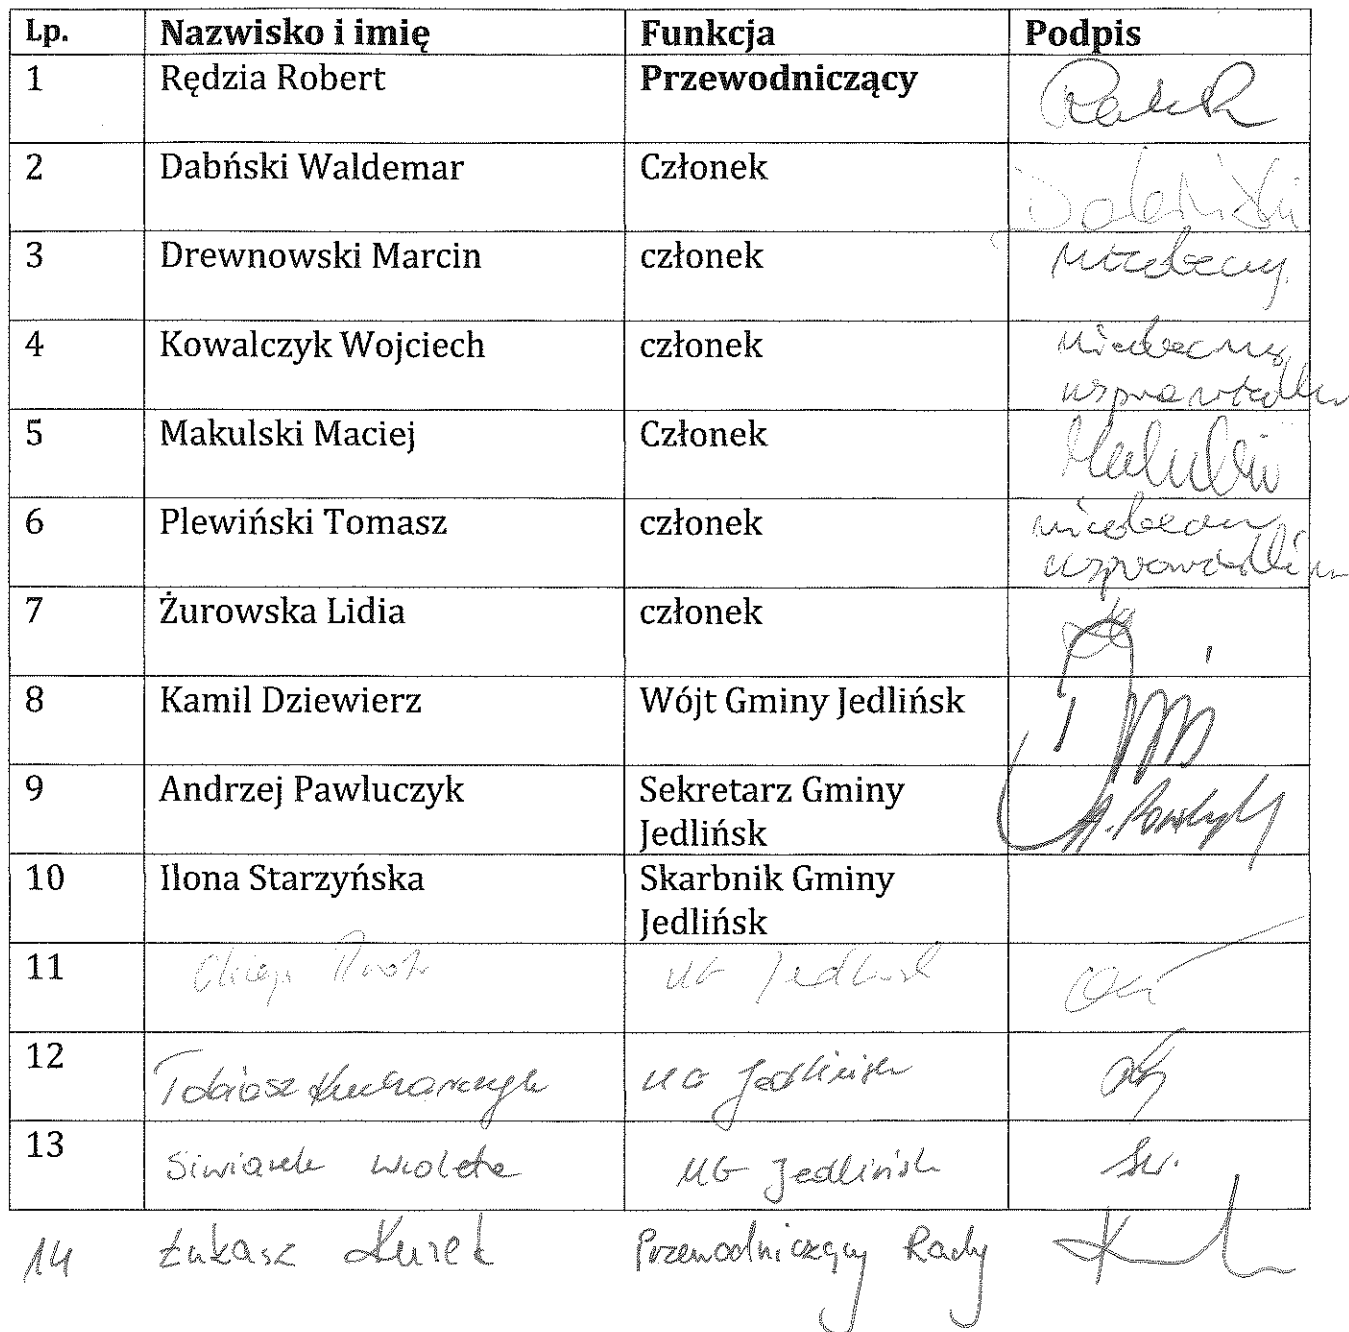 Lp. Nazwisko i imię Funkcja Podpis
1 Rędzia Robert Przewodniczący
2 Dabński Waldemar Członek
3 Drewnowski Marcin członek
4 Kowalczyk Wojciech członek niebecny
usprawiedliw
5 Makulski Maciej Członek
6 Plewiński Tomasz członek
usprawiedliw
7 Żurowska Lidia członek
8 Kamil Dziewierz Wójt Gminy Jedlińsk
9 Andrzej Pawluczyk Sekretarz Gminy
Jedlińsk
10 Ilona Starzyńska Skarbnik Gminy
Jedlińsk
11 UG Jedlińsk
12 Tobiasz Kucharczyk UG Jedlińsk
13 Siwiarek Wioleta UG Jedlińsk Sw.
14 Łukasz Kurek Przewodniczący Rady